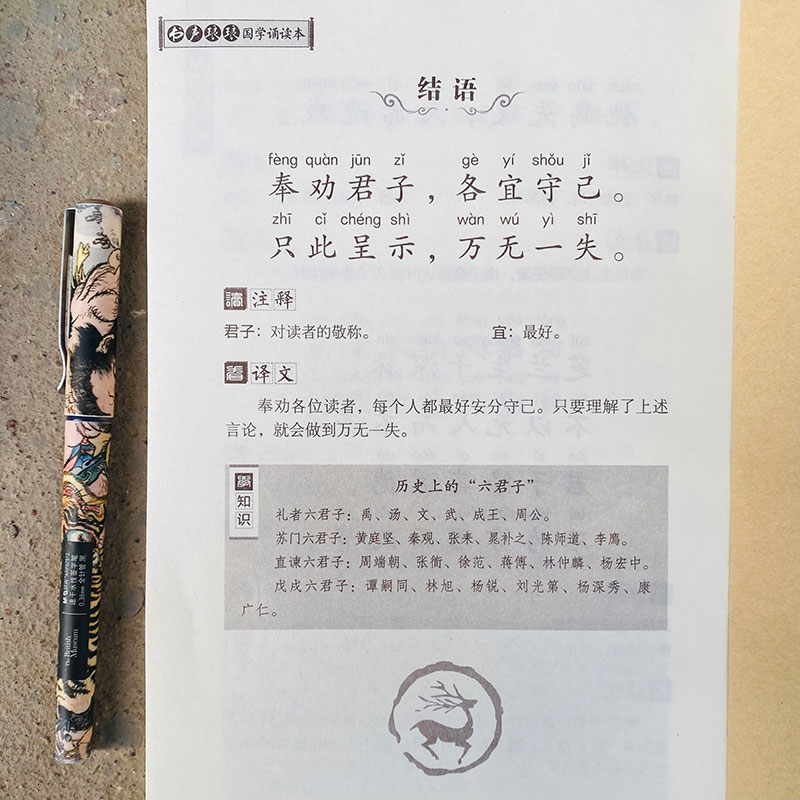 书声琅琅国学诵读本
结语
fèng quàn jūn zǐ gè yí shǒu jǐ
奉劝君子，各宜守己。
zhī cǐ chéng shì wàn wú yì shī
只此呈示，万无一失。
读 注释
君子：对读者的敬称。 宜：最好。
译文
奉劝各位读者，每个人都最好安分守己。只要理解了上述
言论，就会做到万无一失。
学知识
历史上的“六君子”
礼者六君子：禹、汤、文、武、成王、周公。
苏门六君子：黄庭坚、秦观、张耒、晁补之、陈师道、李廌。
直谏六君子：周端朝、张衜、徐范、蒋傅、林仲麟、杨宏中。
戊戌六君子：谭嗣同、林旭、杨锐、刘光第、杨深秀、康
广仁。
M&G
速干水性签字笔
0.38mm 全针管 黑
The British
Museum